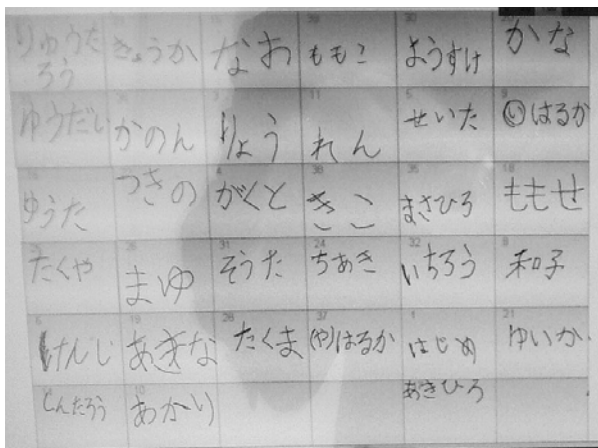 りゅうたろう きょうか なお ももこ ようすけ かな
ゆうだい かのん りょう れん せいた いはるか
ゆうた つきの がくと きこ まさひろ ももせ
たくや まゆ そうた ちあき いちろう 和子
けんじ あきな たくま (や)はるか はじめ ゆいか
しんたろう あかり あきひろ